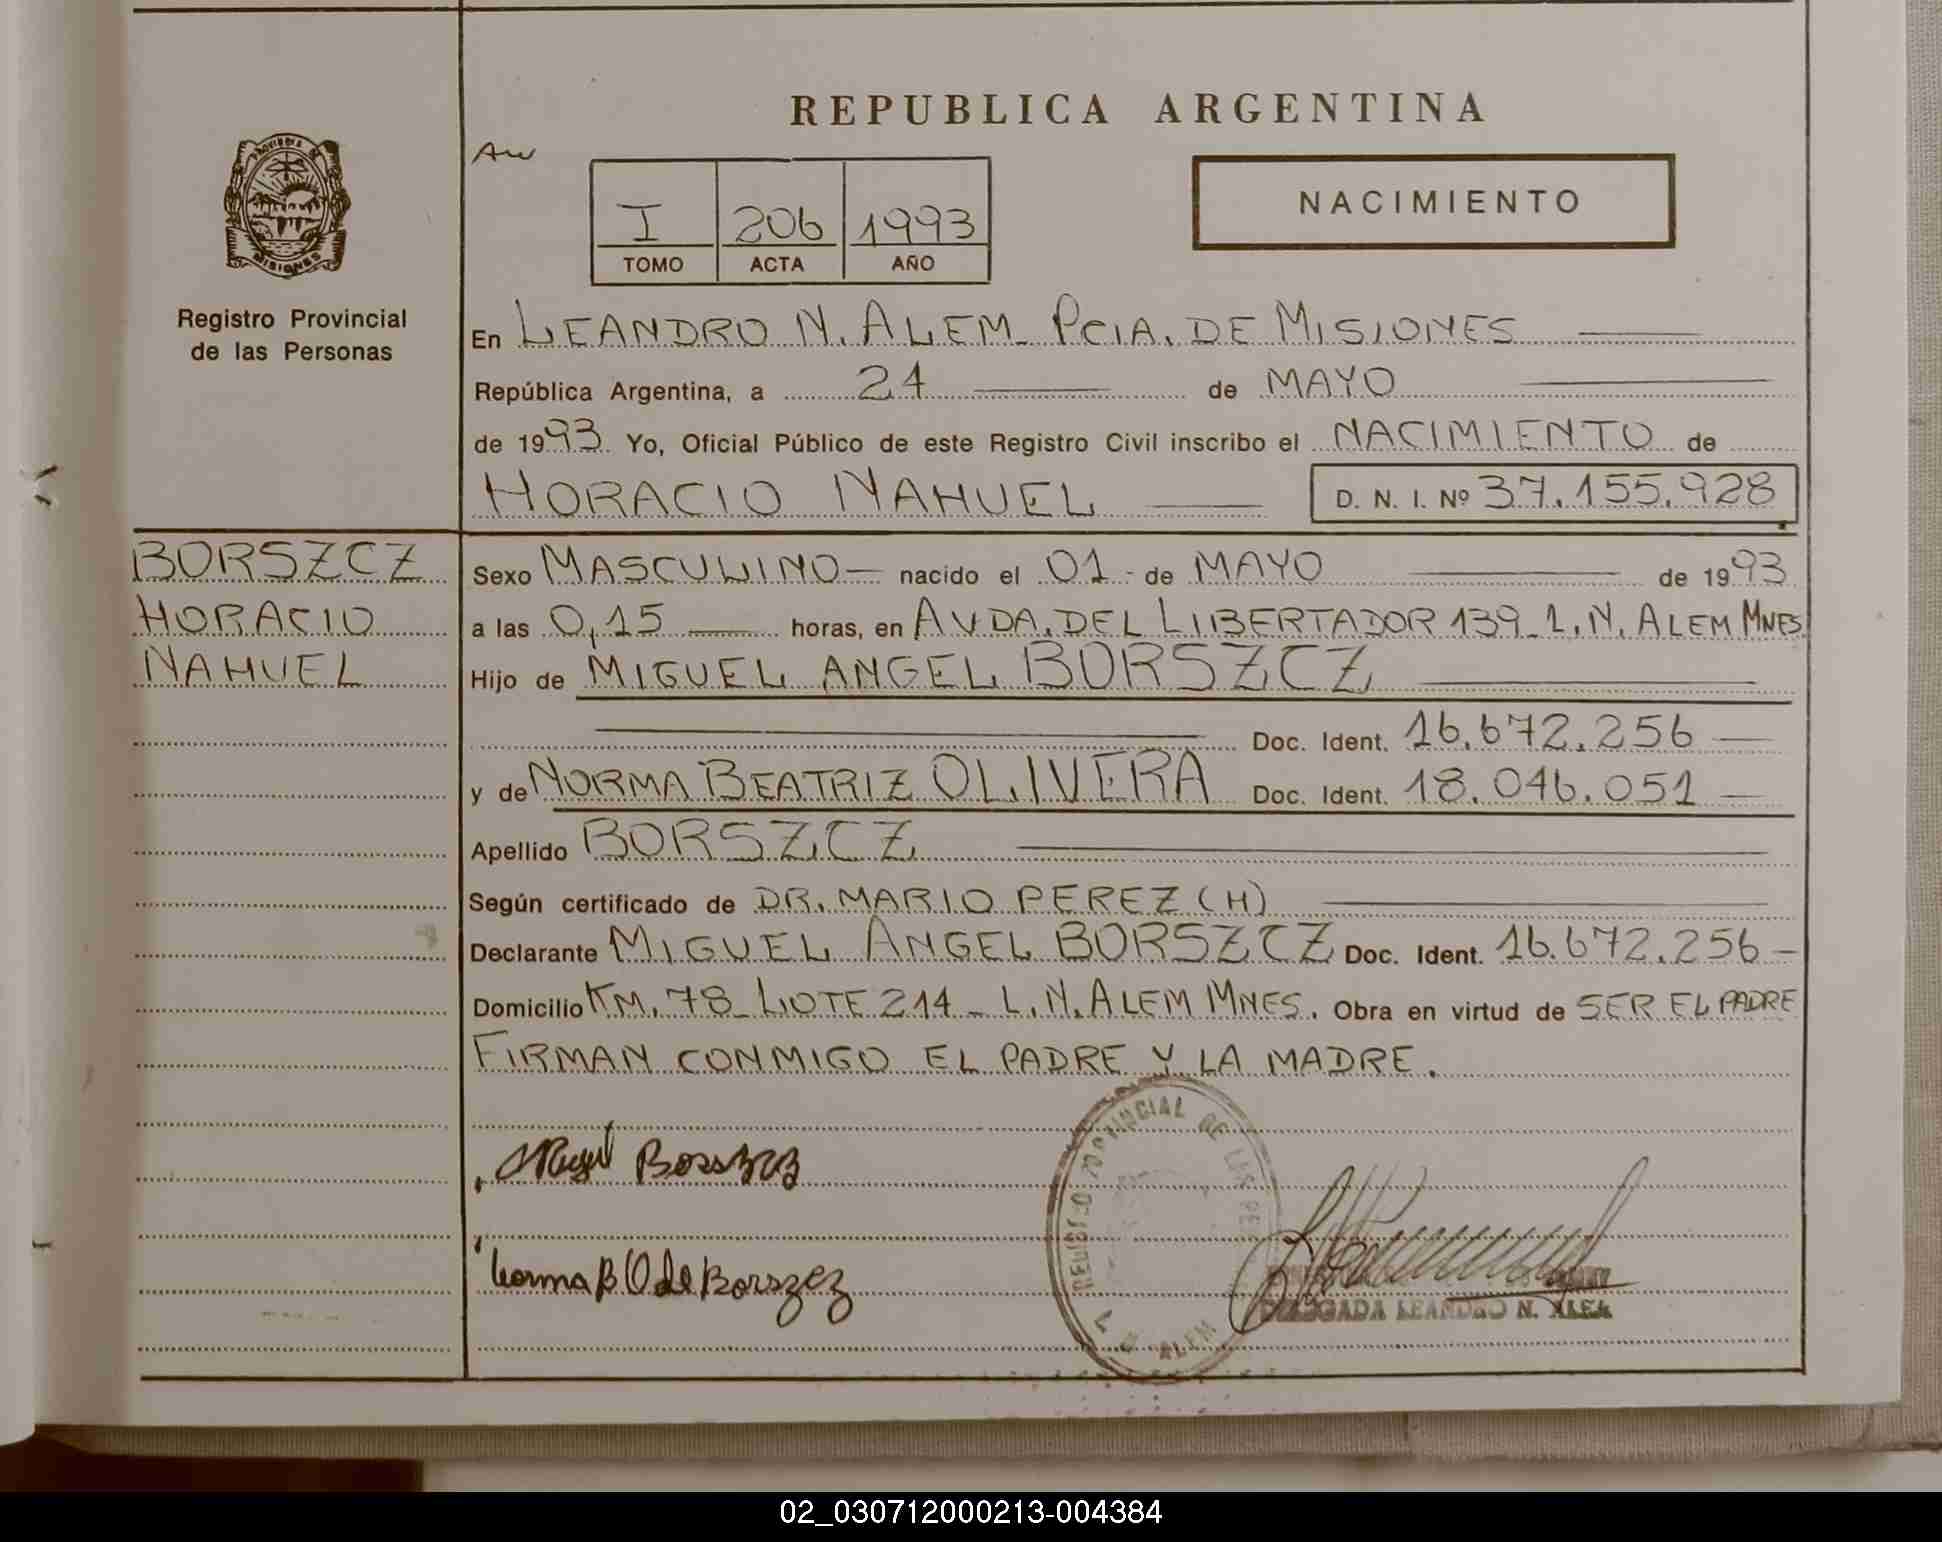 REPUBLICA ARGENTINA
PROVINCIA DE
MISIONES
Registro Provincial
de las Personas
I 206 1993
TOMO ACTA AÑO
NACIMIENTO
En LEANDRO N. ALEM - PCIA. DE MISIONES
República Argentina, a 24 de MAYO
de 1993. Yo, Oficial Público de este Registro Civil inscribo el NACIMIENTO de
HORACIO NAHUEL D. N. I. Nº 37.155.928
BORSZCZ
HORACIO
NAHUEL
Sexo MASCULINO — nacido el 01 - de MAYO de 1993
a las 0,15 horas, en AVDA. DEL LIBERTADOR 139 - L. N. ALEM MNES
Hijo de MIGUEL ANGEL BORSZCZ
Doc. Ident. 16.672.256 —
y de NORMA BEATRIZ OLIVERA Doc. Ident. 18.046.051 —
Apellido BORSZCZ
Según certificado de DR. MARIO PEREZ (H)
Declarante MIGUEL ANGEL BORSZCZ Doc. Ident. 16.672.256 —
Domicilio KM. 78 - LOTE 214 - L. N. ALEM MNES. Obra en virtud de SER EL PADRE
FIRMAN CONMIGO EL PADRE Y LA MADRE.
Miguel Borszcz
Norma B O de Borszcz
REGISTRO PROVINCIAL DE LAS PE
L N ALEM
DELEGADA LEANDRO N. ALEM
02_030712000213-004384